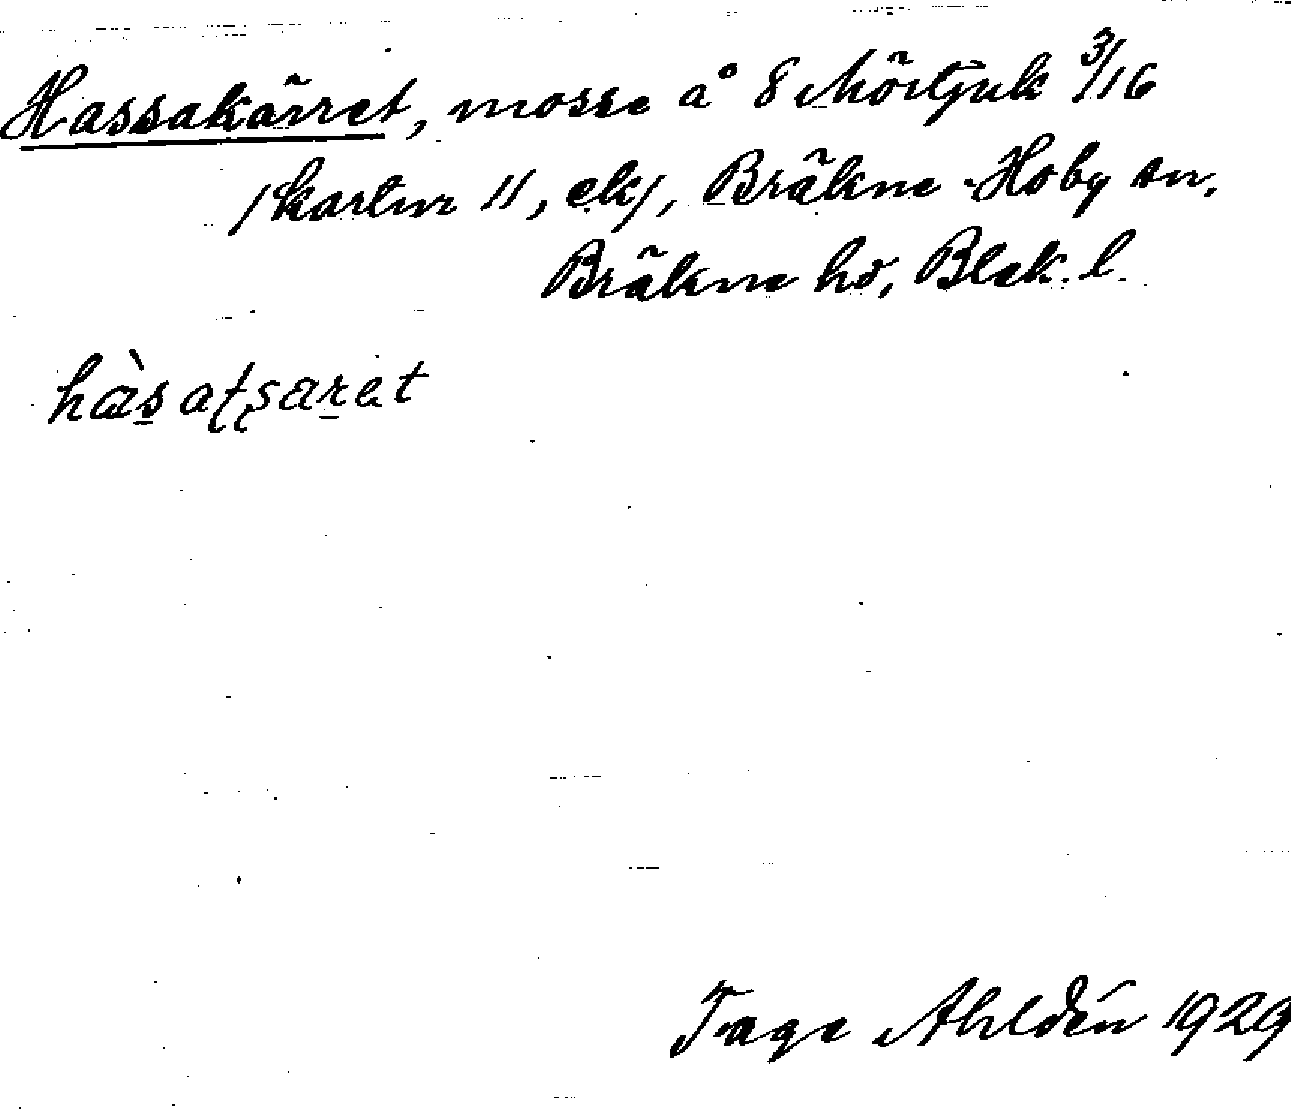 Hassakärret, mosse å 8 Mörtjuk 3/16
/kartnr 11, ek/, Bräkne-Hoby sn,
Bräkne hd, Blek. l.
Tage Ahldén 1929